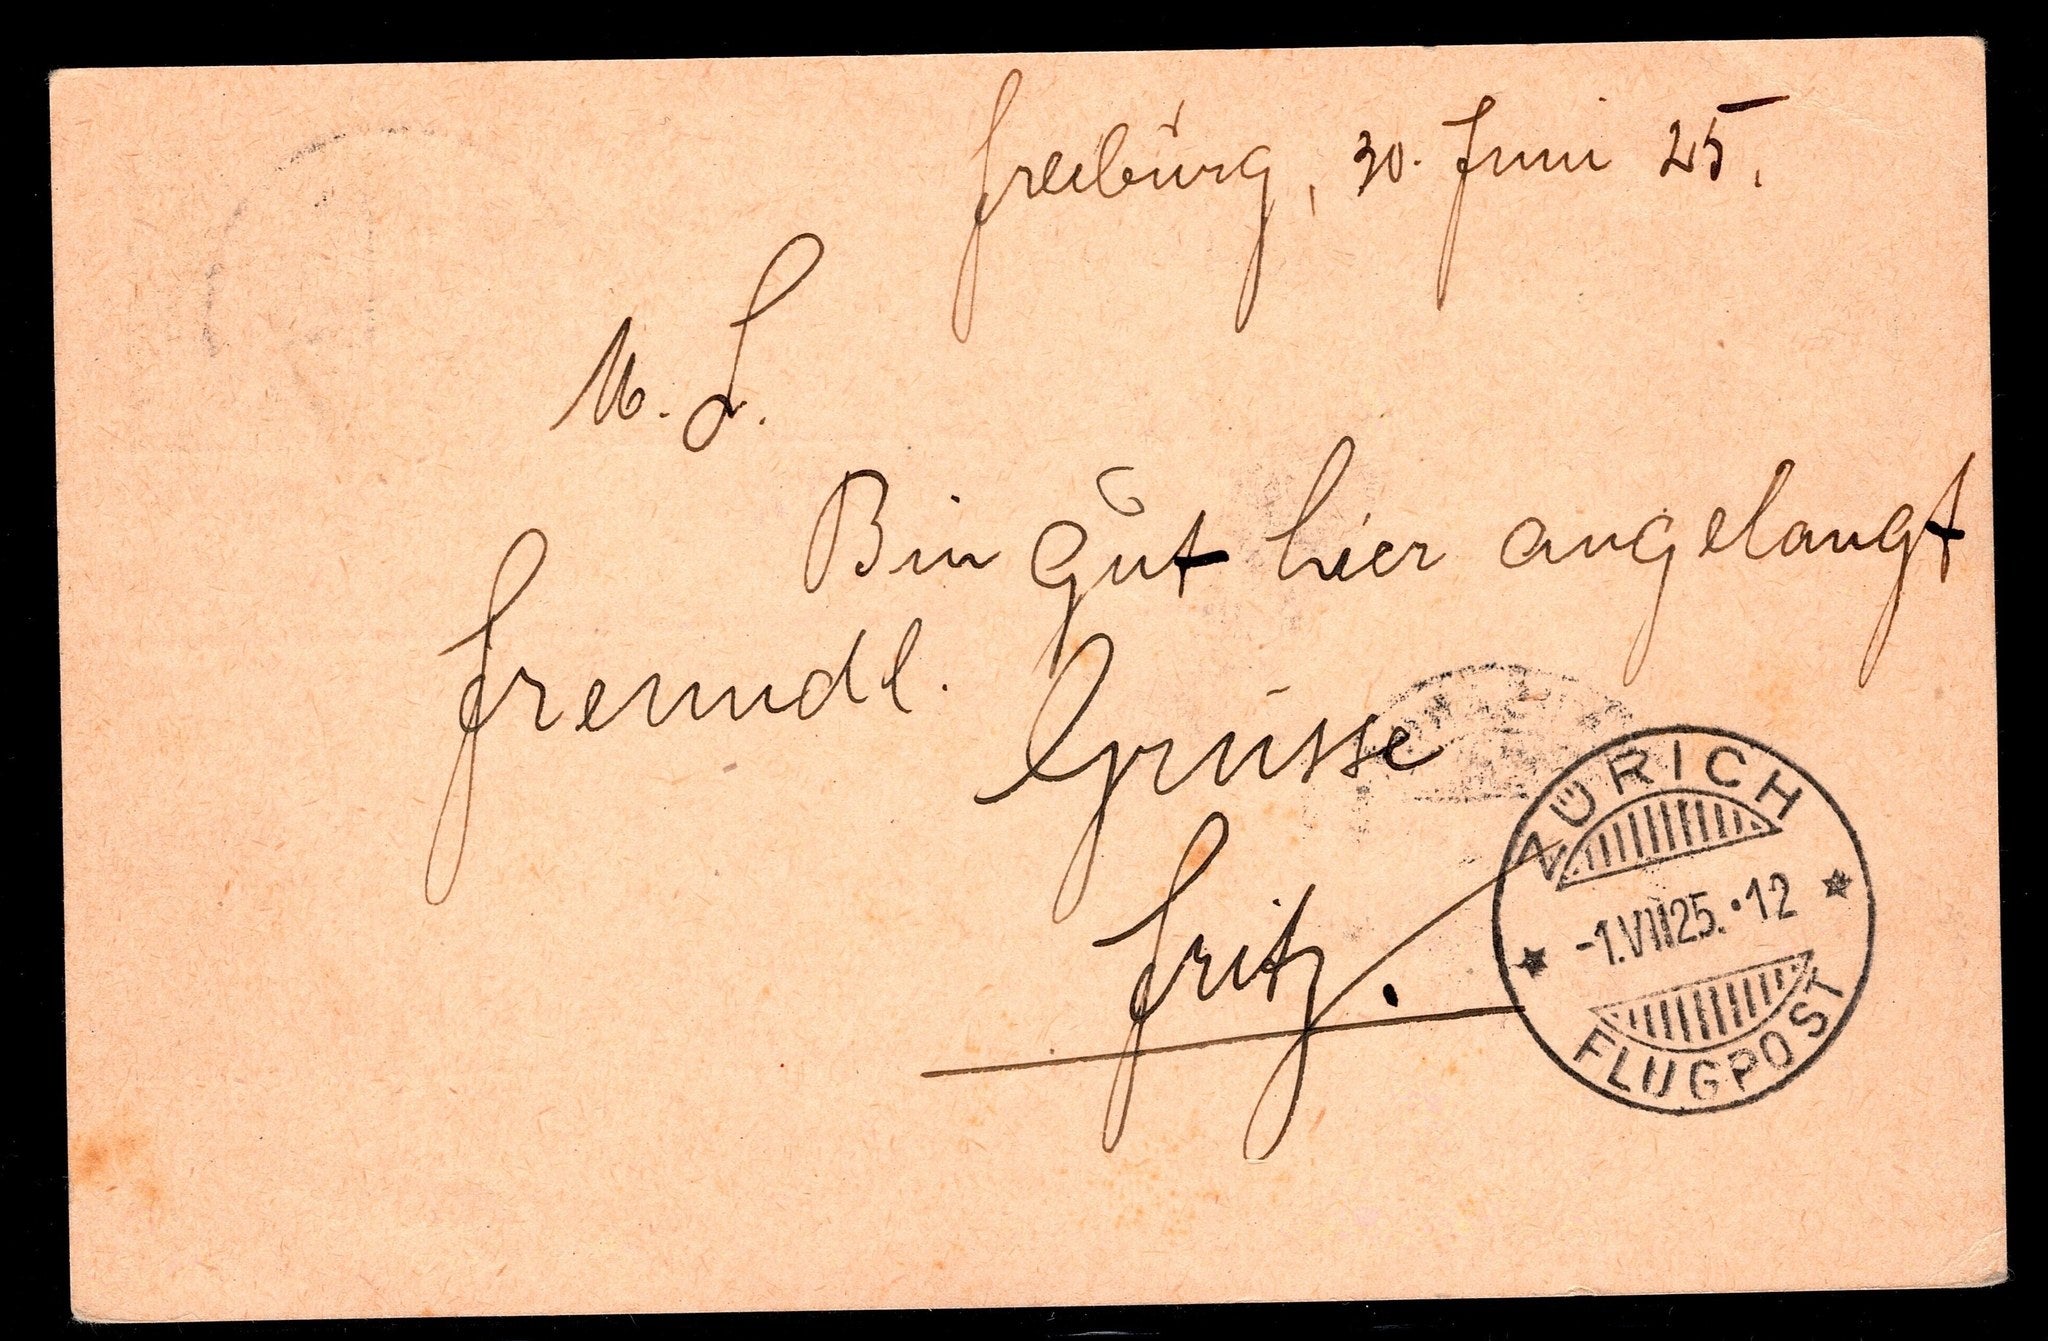 Freiburg, 30. Juni 25.
M. L.
Bin gut hier angelangt
freundl. Grüsse
Fritz.
ZÜRICH
-1.VII 25.•12
FLUGPOST